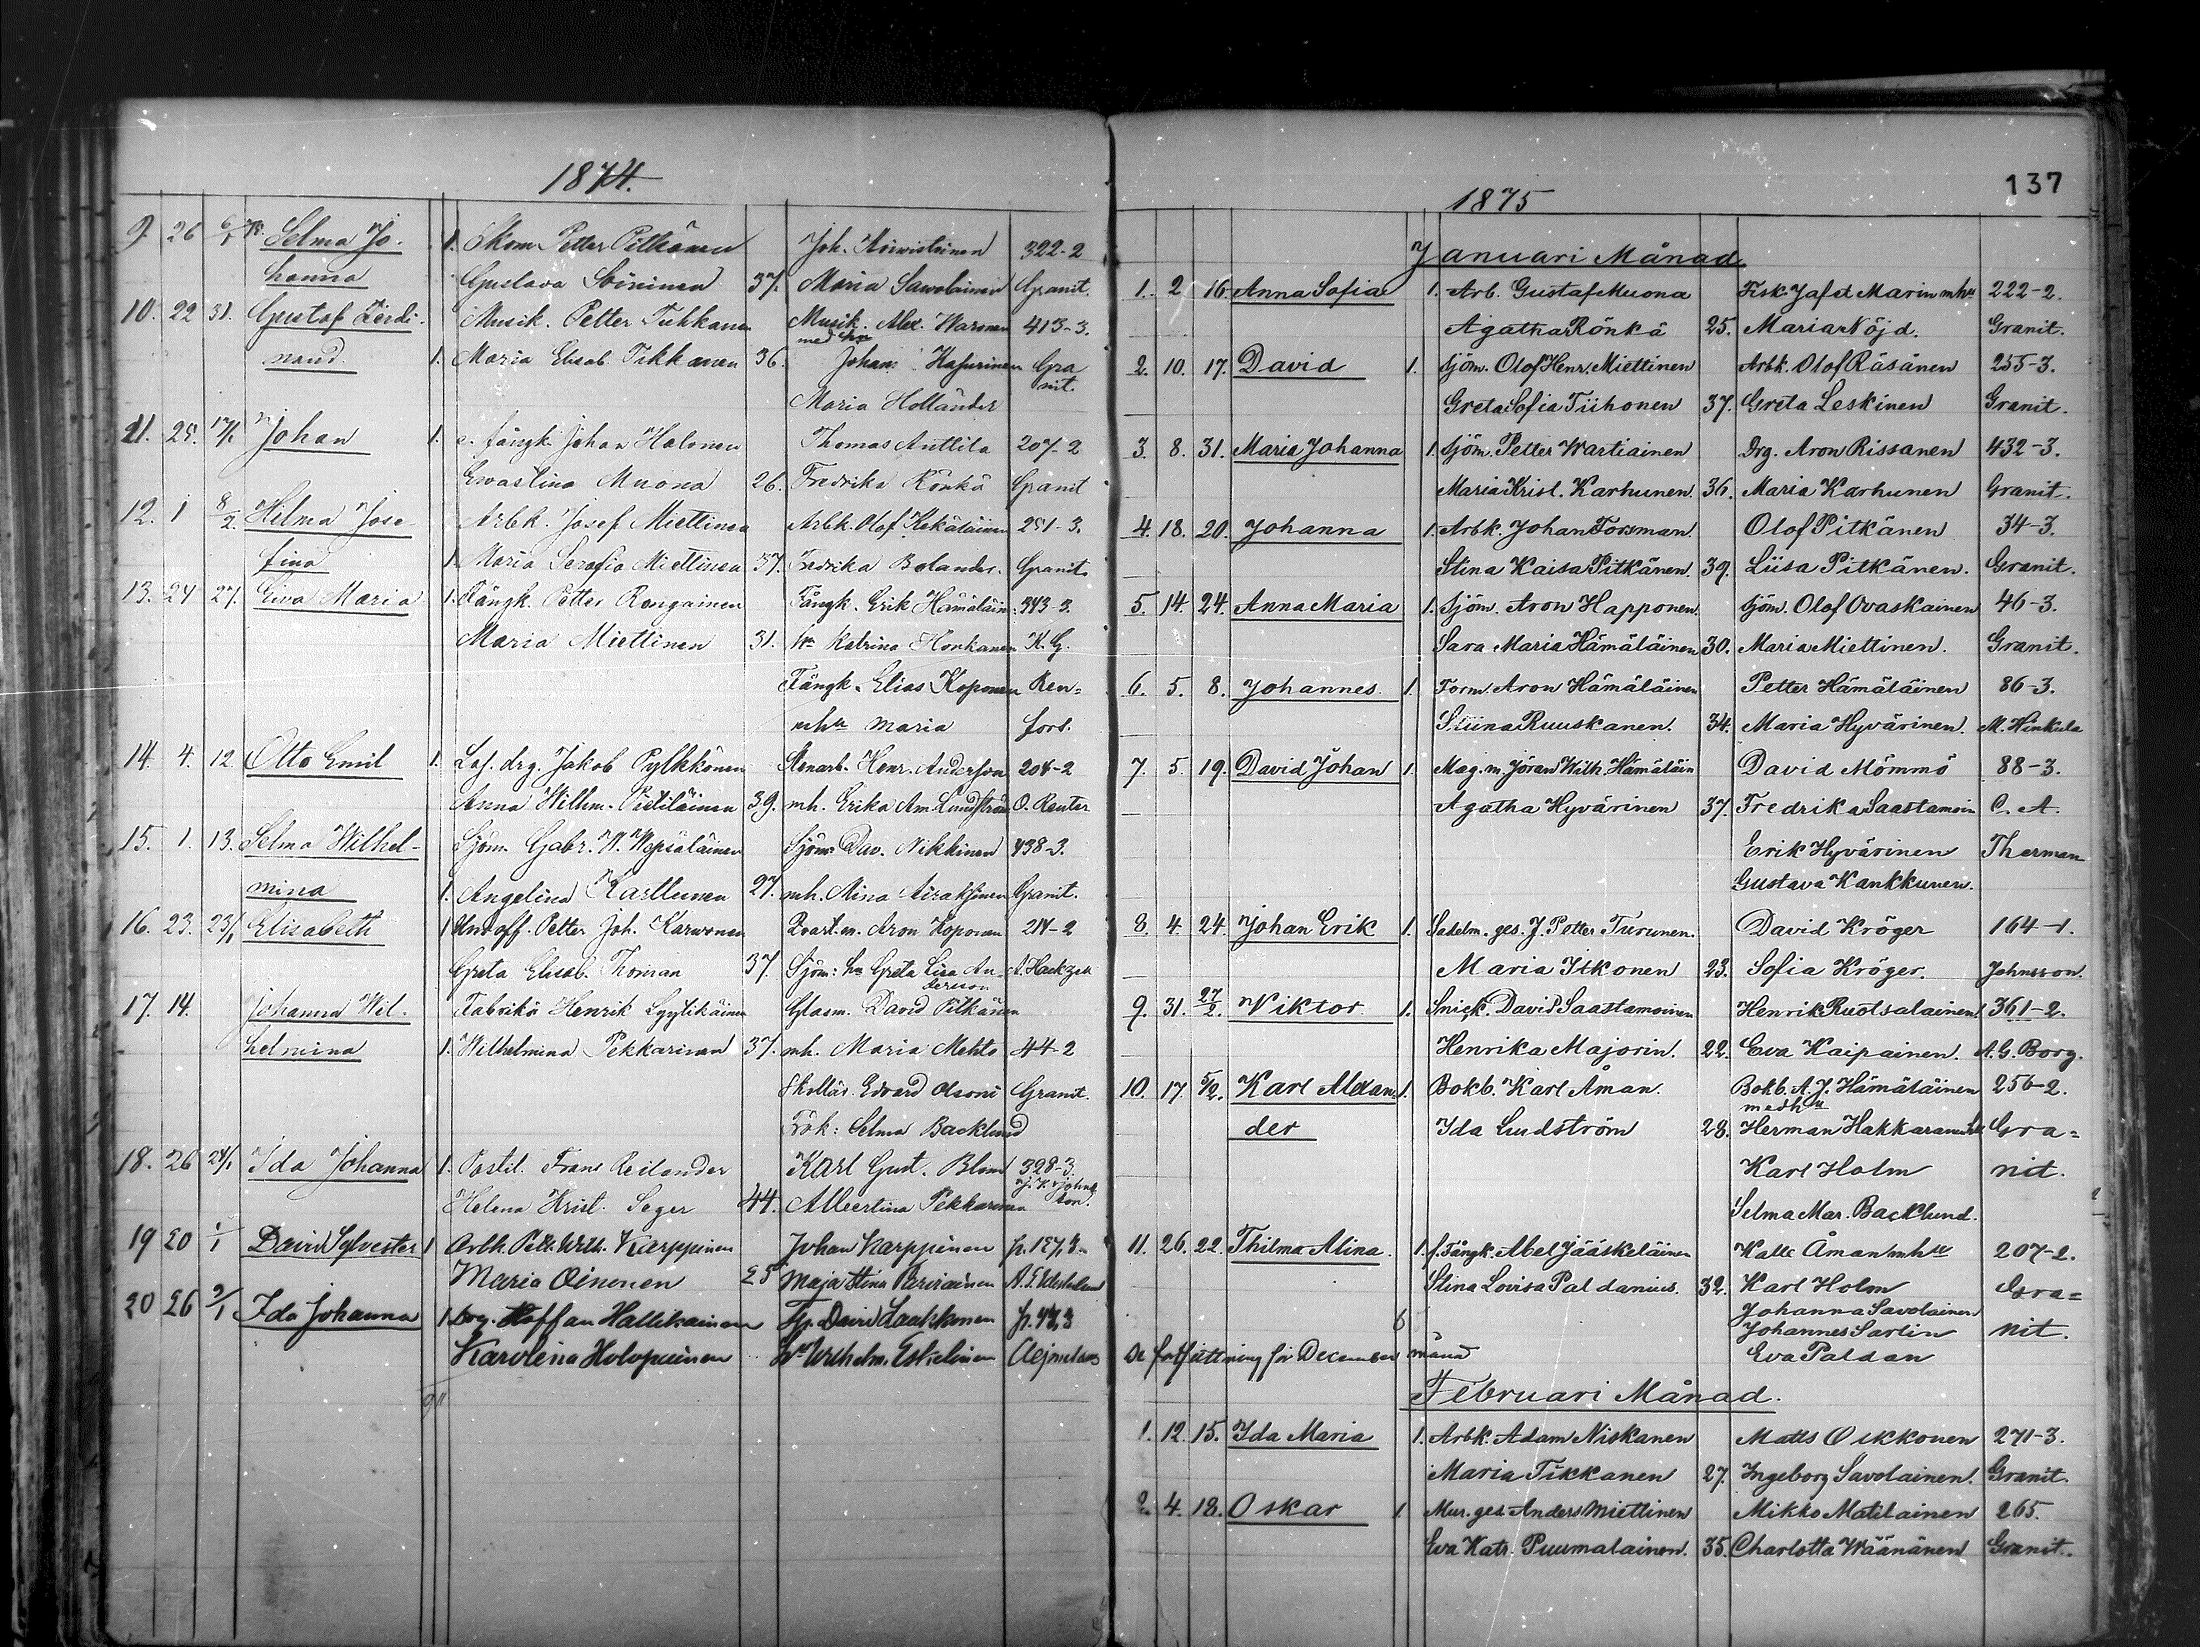 1874.
9. 26 6/1 75. Selma Jo- 1. Petter Pitkänen Joh. 322-2
hanna Gustava Soininen 37. Maria Sawolainen Granit.
10. 22 31. Gustaf Ferdi- Musik. Petter Tuhkanen Musik. Alex. Waronen 413-3.
med hu
nand. 1. Maria Elisab. Tikkanen 36. Johan Gra
nit.
Maria Holländer
11. 25. 17/1 Johan 1. Johan Halonen Thomas Anttila 207-2
Ewastina Muona 26. Fredrika Rönkä Granit
12. 1 8/2. Hilma Jose Arbk. Josef Miettinen Arbk. Olof 251-3.
fina 1. Maria Serafia Miettinen 37. Fredrika Bolander. Granit.
13. 24 27. Ewa Maria 1. Fångk. Petter Rongainen Fångk. Erik Hämäläin. 343-3.
Maria Miettinen 31. Hu Katrina Honkanen K. G.
Fångk. Elias Koponen Ren=
mhu Maria fors.
14. 4. 12 Otto Emil 1. drg. Jakob Pylkkönen Stenarb. Henr. Anderson 204-2
Anna Wilhm. Pistiläinen 39. mh. Erika Am. Lundström O. Renter
15. 1. 13. Selma Wilhel- Sjöm. Gabr. W. Wepsäläinen Sjöm. Dav. Nikkinen 438-3.
mina 1. Angelina Karttunen 27. mh. Mina Airaksinen Granit.
16. 23. 23/1 Elisabeth 1. Petter Joh. Karwonen Aron Koponen 214-2
Greta Elisab. 37. Sjöm: hu Greta Lisa An-
derson
17. 14. Johanna Wil- Henrik Lyytikäinen Glasm. David Pitkänen
helmina 1. Wilhelmina Pekkarinen 37. mh. Maria Mehto 44-2
Edvard Olsoni Granit.
Frök: Selma Backlund
18. 26 24/1 Ida Johanna 1. Postil. Frans Reilander Karl Gust. Blom 328-3.
Helena Krist. Seger 44. Albertina Pekkarinen
19 20 1/1 David Sylvester 1 Arbk. Pett. Wilh. Karppinen Johan Karppinen
Maria Oinonen 25 Maja Stina
20 26 9/1 Ida Johanna 1. Drg. Staffan Hallikainen David Laakkonen
Karolina Holopainen
137
1875
Januari Månad
1. 2 16. Anna Sofia 1. Arb. Gustaf Muona Fisk. Jafet Marin mhu 222-2.
Agatha Rönkä 25. Maria Nöjd. Granit.
2. 10. 17. David 1. Sjöm. Olof Henr. Miettinen Arbk. Olof Räsänen 255-3.
Greta Sofia Tiihonen 37. Greta Leskinen Granit.
3. 8. 31. Maria Johanna 1. Sjöm. Petter Wartiainen Drg. Aron Rissanen 432-3.
Maria Krist. Karhunen. 36. Maria Karhunen Granit.
4. 18. 20. Johanna 1. Arbk. Johan Forsman. Olof Pitkänen 34-3.
Stina Kaisa Pitkänen. 39. Liisa Pitkänen. Granit.
5. 14. 24. Anna Maria 1. Sjöm. Aron Happonen. Sjöm. Olof Ovaskainen 46-3.
Sara Maria Hämäläinen 30. Maria Miettinen. Granit.
6. 5. 8. Johannes. 1. Torm. Aron Hämäläinen Petter Hämäläinen 86-3.
Stiina Ruuskanen. 34. Maria Hyvärinen. M. Hinkula
7. 5. 19. David Johan 1. Mag. m. Jöran Wilh. Hämäläin David Mömmö 88-3.
Agatha Hyvärinen 37. Fredrika Saastamoin C. A.
Erik Hyvärinen Therman
Gustava Kankkunen.
8. 4. 24. Johan Erik 1. Sadelm. ges. J. Petter Turunen. David Kröger 164-1.
Maria Itkonen 23. Sofia Kröger. Johnsson.
9. 31. 27/2. Viktor 1. Snick. David Saastamoinen Henrik Ruotsalainen 361-2.
Henrika Majorin. 22. Eva Kaipainen. A. G. Borg.
10. 17. 5/2. Karl Alexan- 1. Bokb. Karl Åman. Bokb. A. J. Hämäläinen 256-2.
med hu
der Ida Lindström 28. Herman Hakkarainen Gra=
Karl Holm nit.
Selma Mar. Backlund.
11. 26. 22. Thilma Alina. 1. f. Fångk. Abel Jääskeläinen Kalle Åman mhu 207-2.
Stina Lovisa Paldanius. 32. Karl Holm Gra=
Johanna Savolainen
Johannes Sarlin nit.
Se fortsättning för December månad Eva Paldan
Februari Månad.
1. 12. 15. Ida Maria 1. Arbk. Adam Niskanen Matts Oikkonen 271-3.
Maria Tikkanen 27. Ingeborg Savolainen. Granit.
2. 4. 18. Oskar 1. Mur. ges. Anders Miettinen Mikko Matilainen 265.
Eva Katr. Puumalainen. 35. Charlotta Wäänänen Granit.